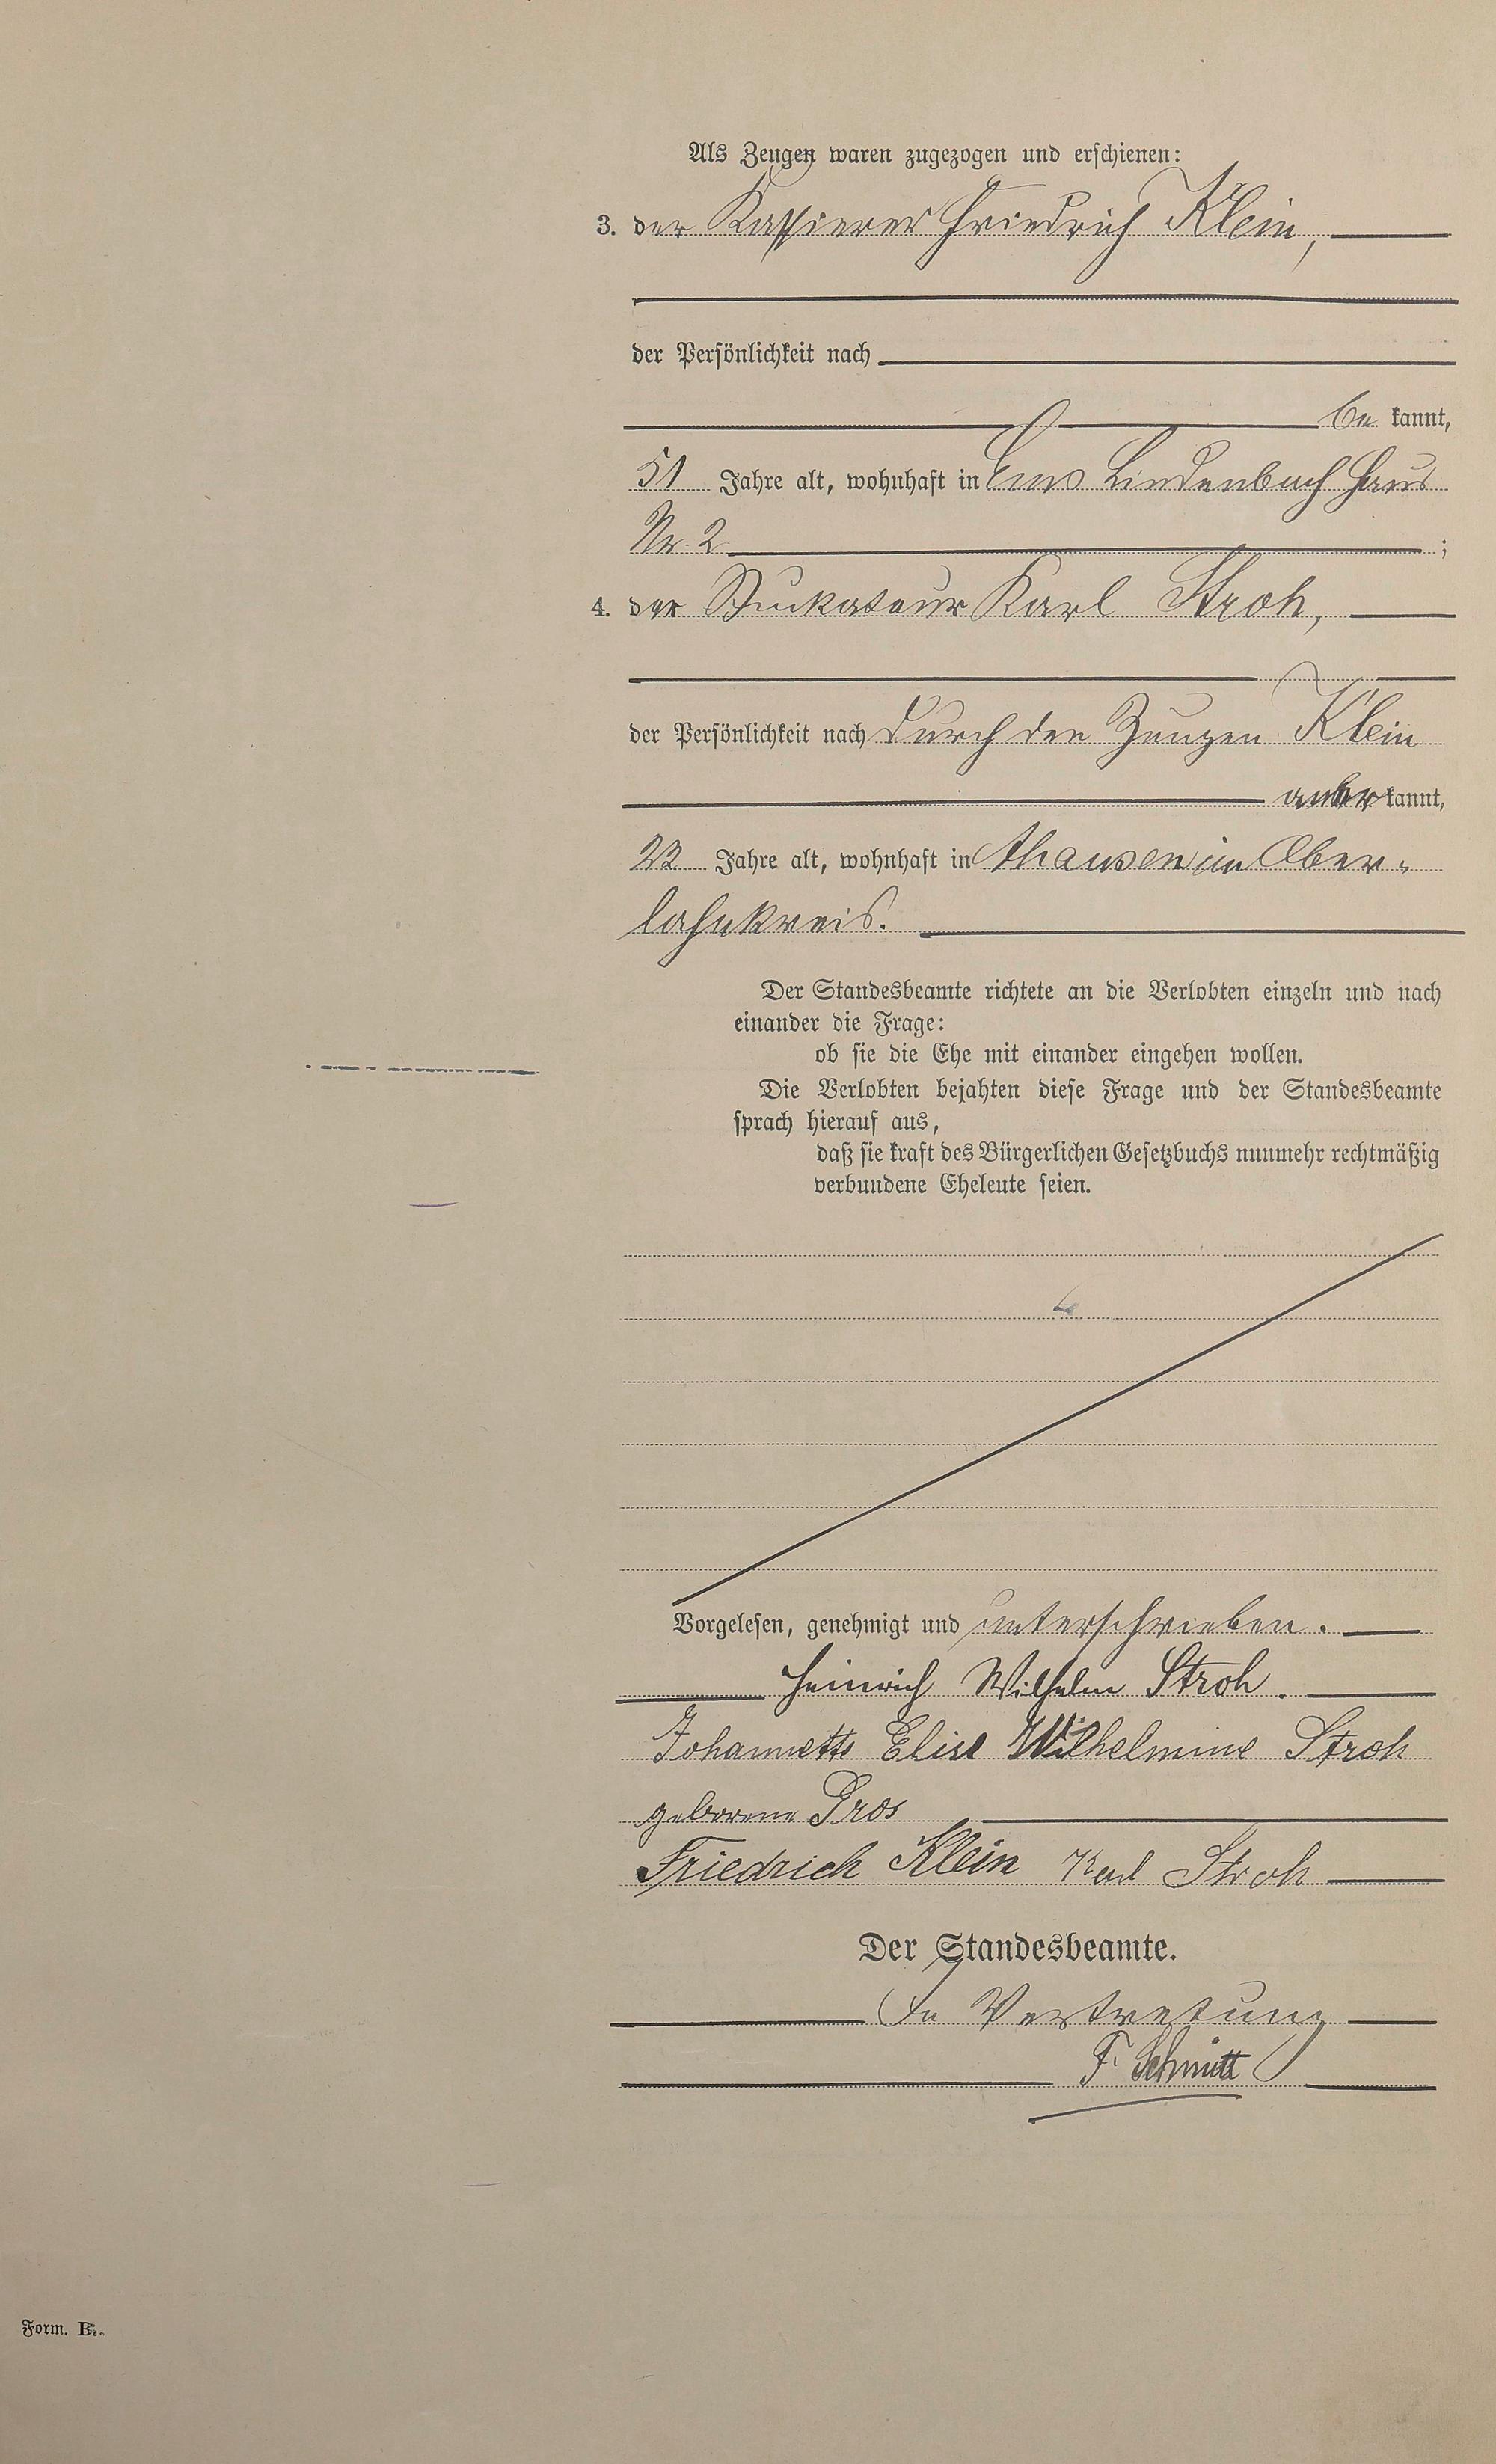 Als Zeugen waren zugezogen und erschienen:
3. der Kassierer Friedrich Klein,
der Persönlichkeit nach
be kannt,
51 Jahre alt, wohnhaft in Ems Lindenbach Haus
Nr. 2 ;
4. der Stuckateur Karl Stroh,
der Persönlichkeit nach durch den Zeugen Klein
aner kannt,
22 Jahre alt, wohnhaft in Ahausen im Ober-
lahnkreis.
Der Standesbeamte richtete an die Verlobten einzeln und nach
einander die Frage:
ob sie die Ehe mit einander eingehen wollen.
Die Verlobten bejahten diese Frage und der Standesbeamte
sprach hierauf aus,
daß sie kraft des Bürgerlichen Gesetzbuchs nunmehr rechtmäßig
verbundene Eheleute seien.
Vorgelesen, genehmigt und unterschrieben.
Heinrich Wilhelm Stroh.
Johannette Elise Wilhelmine Stroh
geborene Gros
Friedrich Klein Karl Stroh
Der Standesbeamte.
In Vertretung
F. Schmitt
Form. B.